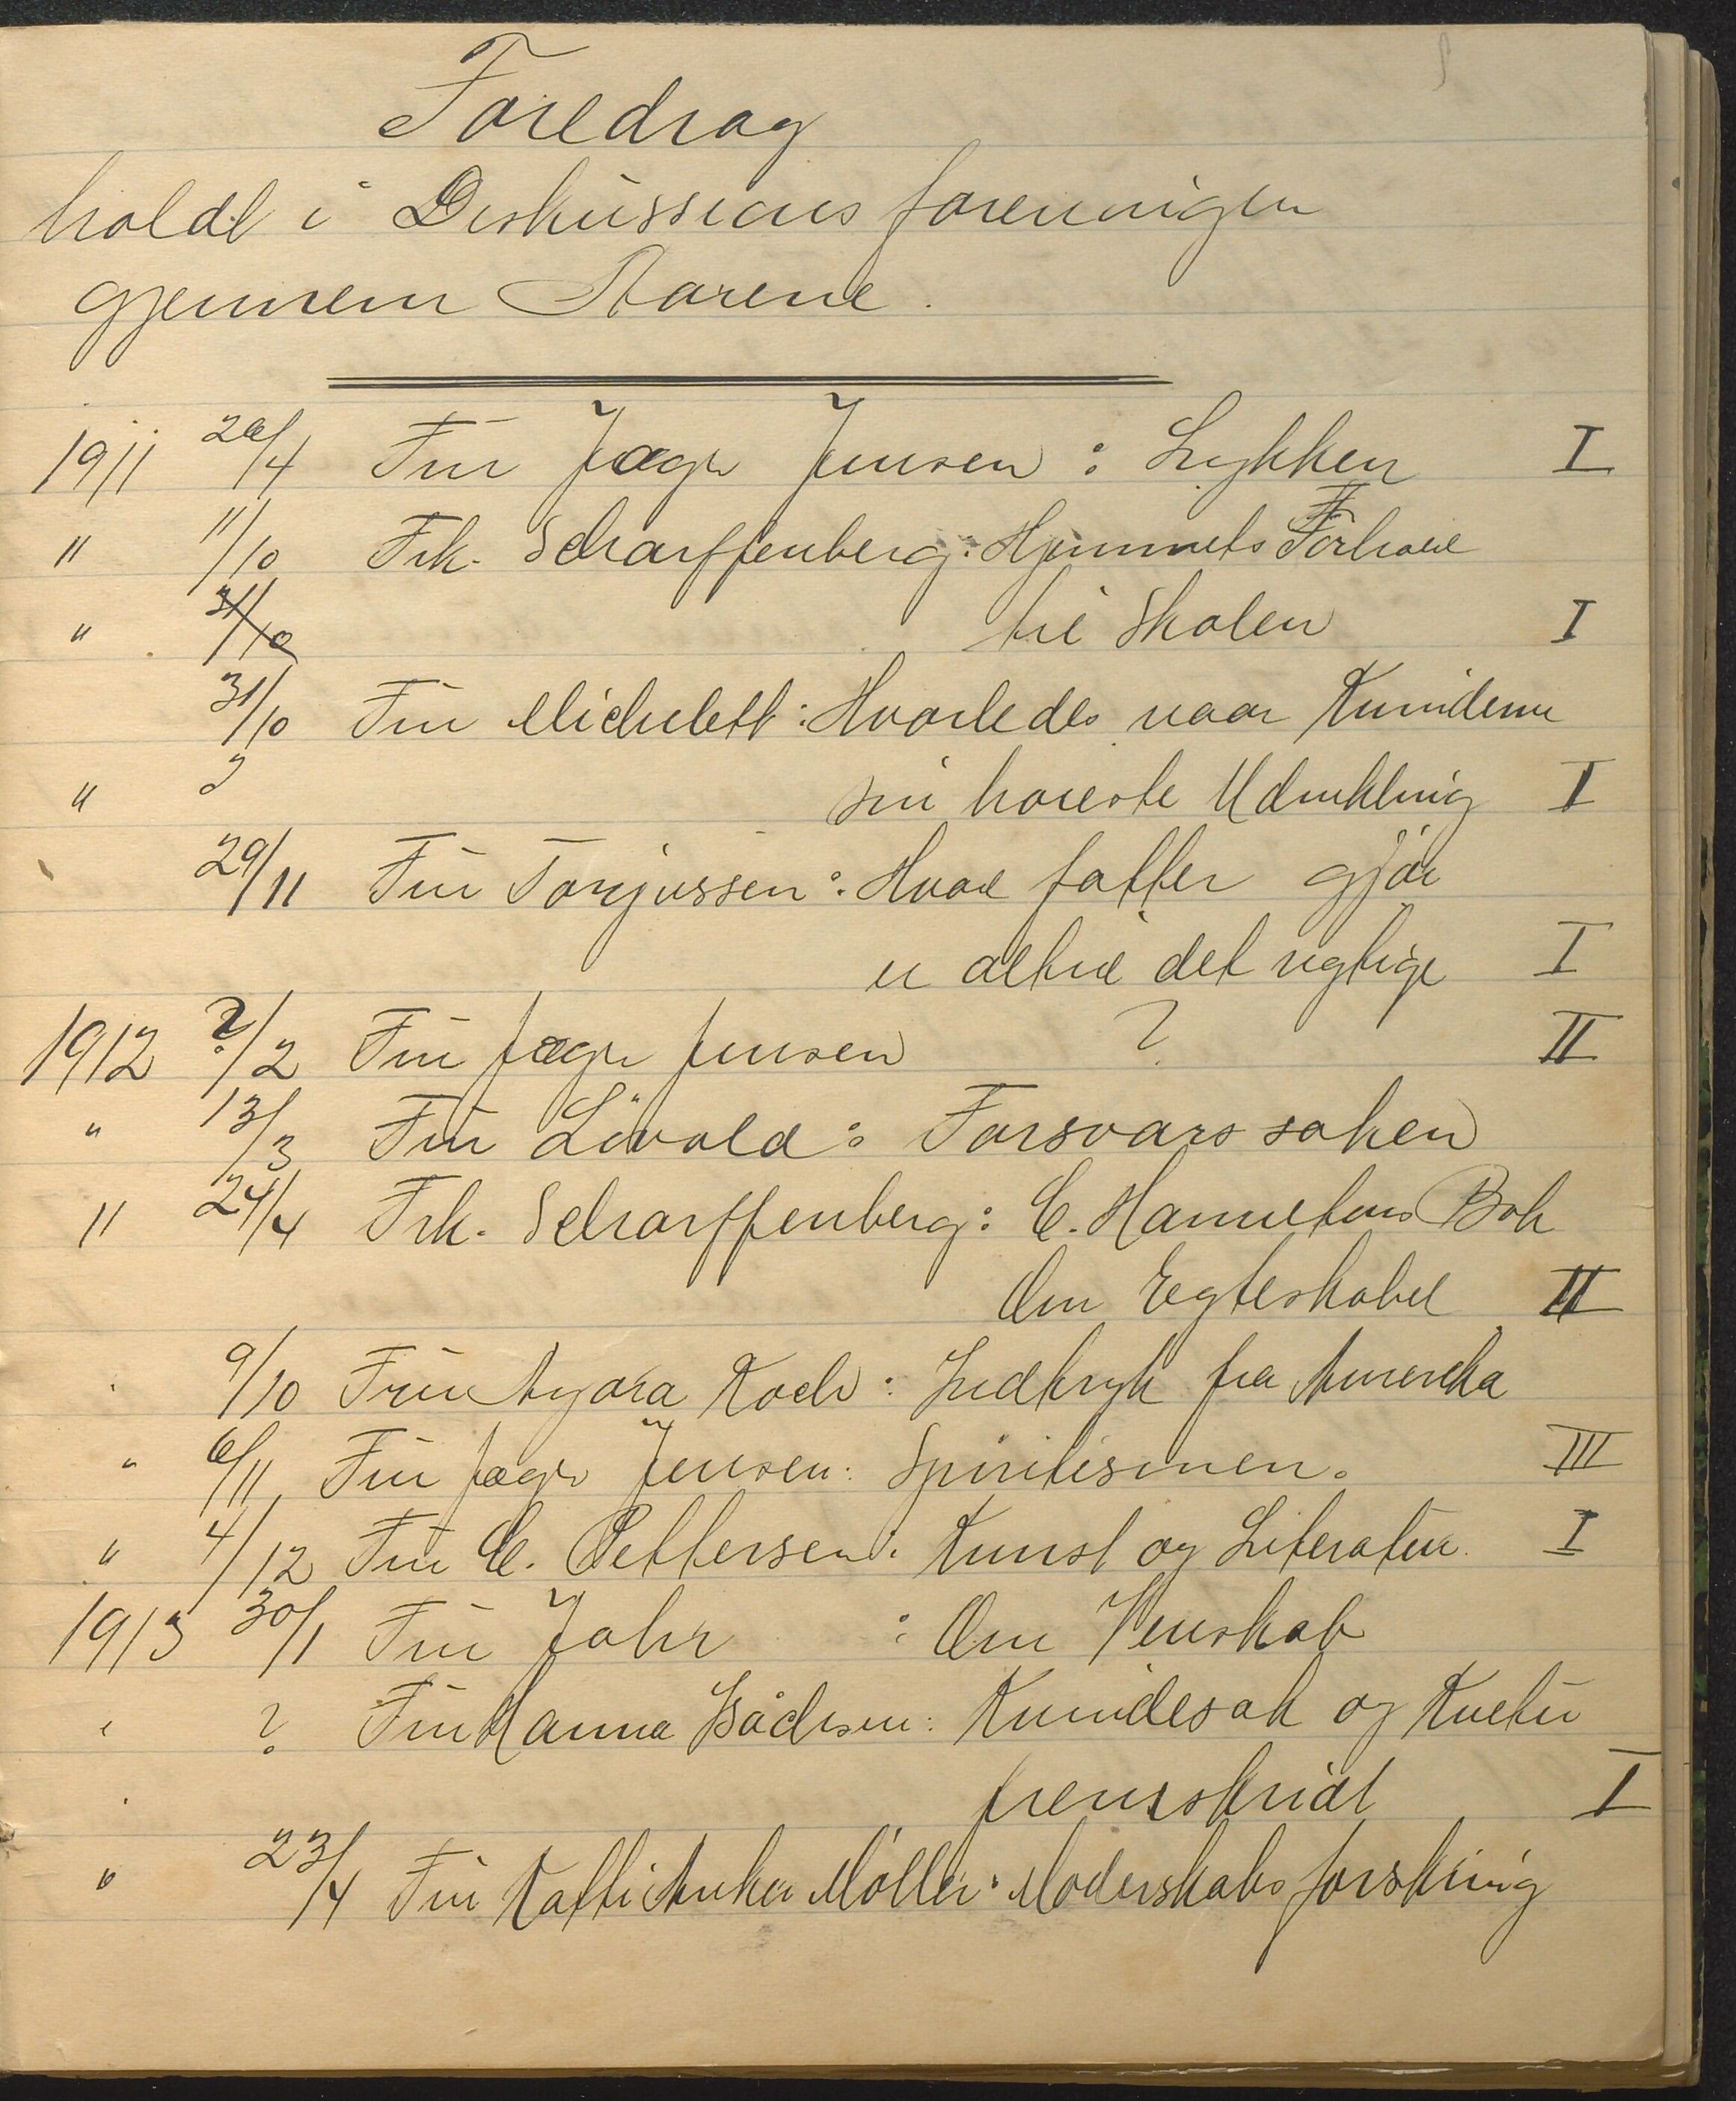 Foredrag
holdt i Diskussionsforeningen
gjennem Aarene.
1911 26/4 Fru Jæger Jensen : Lykken I
" 11/10 Frk. Scharffenberg : Hjemmets Forhold
" 31/10 til Skolen I
31/10 Fru Michelett : Hvorledes naar Kvinderne
" ? sin høieste Udvikling I
29/11 Fru Torjussen : Hvad fatter gjör
er altid det rigtige I
1912 ?/2 Fru Jæger Jensen ? II
" 13/3 Fru Lövold : Forsvarssaken
" 24/4 Frk. Scharffenberg : C. Hamiltons Bok
Om Egteskabet II
" 9/10 Fru Ragna Koch : Indtryk fra Amerika
" 6/11 Fru Jæger Jensen : Spiritismen. III
" 4/12 Fru C. Pettersen : Kunst og Literatur. I
1913 30/1 Fru Jahr : Om Venskab
" ? Fru Hanna Isachsen : Kvindesak og Kultur
" fremskridt I
" 23/4 Fru Katti Anker Möller : Moderskabsforsikring